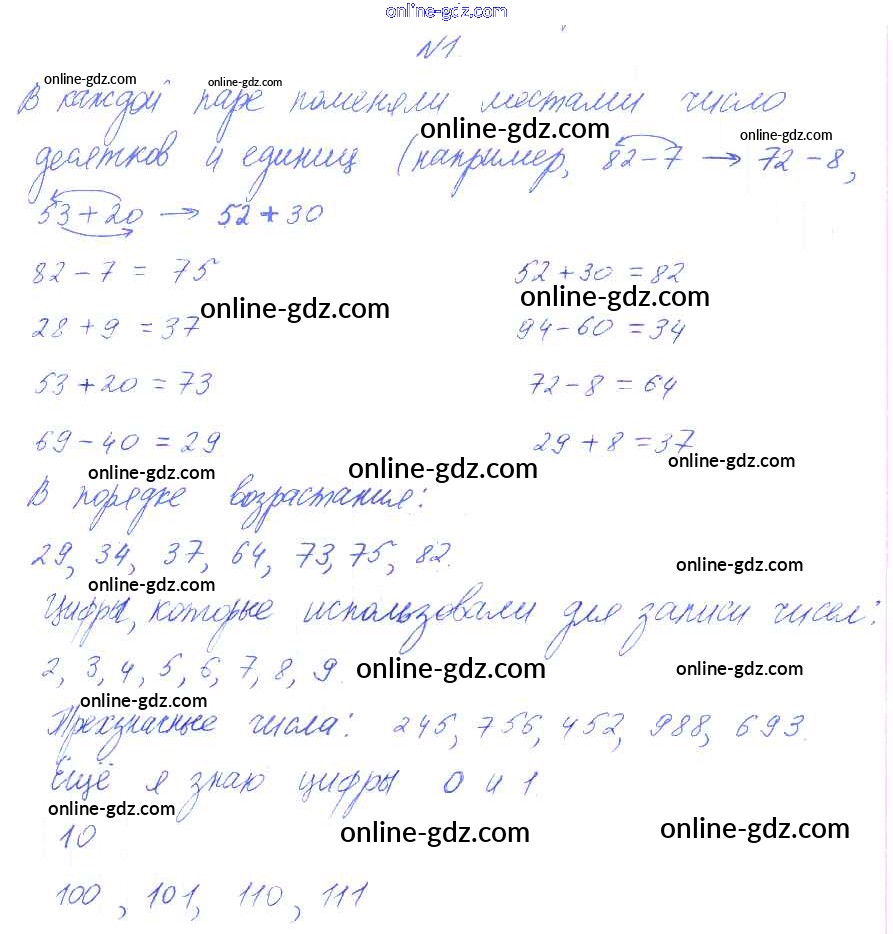 online-gdz.com
№1.
online-gdz.com online-gdz.com
В каждой паре поменяли местами число
online-gdz.com online-gdz.com
десятков и единиц (например, 82-7 → 72-8,
53+20 → 52+30
82-7 = 75 52+30 = 82
online-gdz.com online-gdz.com
28+9 = 37 94-60 = 34
53+20 = 73 72-8 = 64
69-40 = 29 29+8 = 37
online-gdz.com online-gdz.com online-gdz.com
В порядке возрастания:
29, 34, 37, 64, 73, 75, 82.
online-gdz.com online-gdz.com
Цифры, которые использовали для записи чисел:
2, 3, 4, 5, 6, 7, 8, 9.
online-gdz.com online-gdz.com
online-gdz.com
Трехзначные числа: 245, 756, 452, 988, 693.
Ещё я знаю цифры 0 и 1.
online-gdz.com
10
online-gdz.com online-gdz.com
100, 101, 110, 111